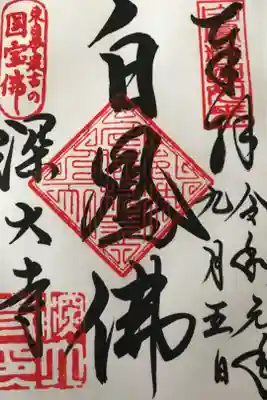 奉拝
令和元年
九月五日
白鳳佛
東日本最古の
国宝佛
深大寺